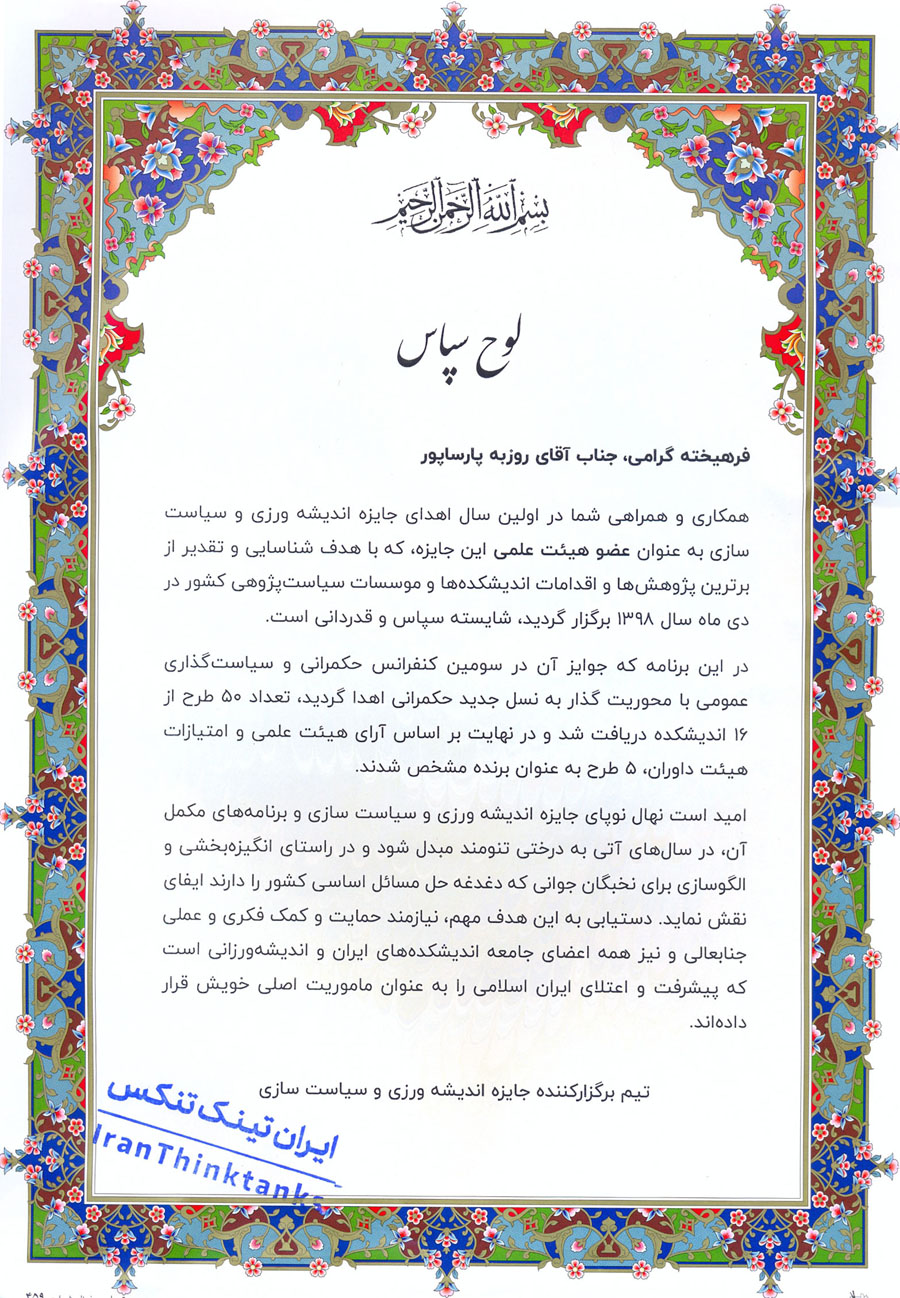 بسم الله الرحمن الرحیم
لوح سپاس
فرهیخته گرامی، جناب آقای روزبه پارساپور
همکاری و همراهی شما در اولین سال اهدای جایزه اندیشه ورزی و سیاست
سازی به عنوان عضو هیئت علمی این جایزه، که با هدف شناسایی و تقدیر از
برترین پژوهش‌ها و اقدامات اندیشکده‌ها و موسسات سیاست‌پژوهی کشور در
دی ماه سال ۱۳۹۸ برگزار گردید، شایسته سپاس و قدردانی است.
در این برنامه که جوایز آن در سومین کنفرانس حکمرانی و سیاست‌گذاری
عمومی با محوریت گذار به نسل جدید حکمرانی اهدا گردید، تعداد ۵۰ طرح از
۱۶ اندیشکده دریافت شد و در نهایت بر اساس آرای هیئت علمی و امتیازات
هیئت داوران، ۵ طرح به عنوان برنده مشخص شدند.
امید است نهال نوپای جایزه اندیشه ورزی و سیاست سازی و برنامه‌های مکمل
آن، در سال‌های آتی به درختی تنومند مبدل شود و در راستای انگیزه‌بخشی و
الگوسازی برای نخبگان جوانی که دغدغه حل مسائل اساسی کشور را دارند ایفای
نقش نماید. دستیابی به این هدف مهم، نیازمند حمایت و کمک فکری و عملی
جنابعالی و نیز همه اعضای جامعه اندیشکده‌های ایران و اندیشه‌ورزانی است
که پیشرفت و اعتلای ایران اسلامی را به عنوان ماموریت اصلی خویش قرار
داده‌اند.
تیم برگزارکننده جایزه اندیشه ورزی و سیاست سازی
ایران تینک تنکس
IranThinktanks
۴۵۹